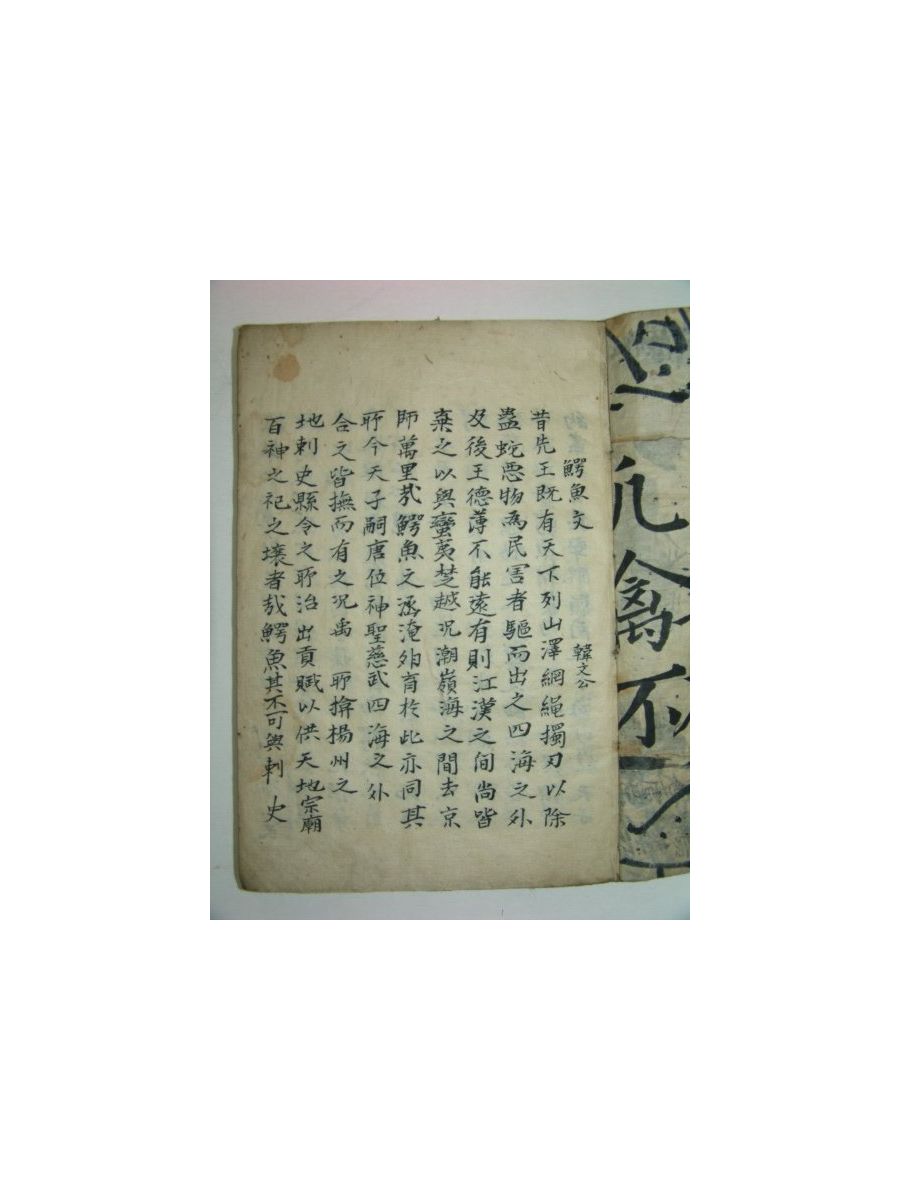 鰐魚文 韓文公
昔先王既有天下列山澤網繩擉刃以除
蟲蛇惡物為民害者驅而出之四海之外
及後王德薄不能遠有則江漢之間尚皆
棄之以與蠻夷楚越况潮嶺海之間去京
師萬里哉鰐魚之涵淹卵育於此亦同其
所今天子嗣唐位神聖慈武四海之外
合之皆撫而有之况禹 所揜楊州之
地刺史縣令之所治出貢賦以供天地宗廟
百神之祀之壤者哉鰐魚其不可與刺 史
凡禽不